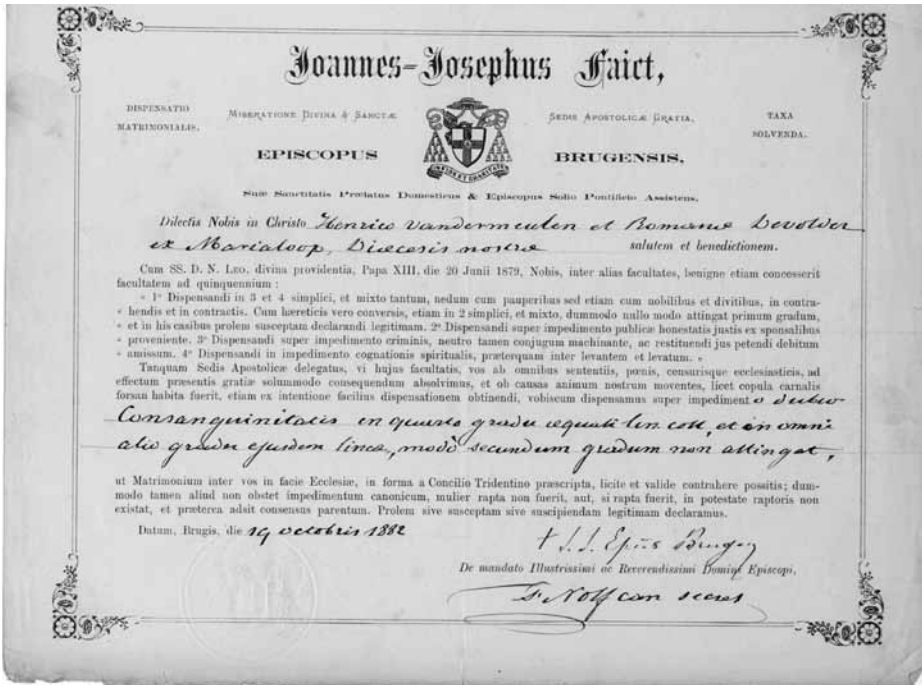 Joannes-Josephus Faict,
DISPENSATIO
MATRIMONIALIS.
MISERATIONE DIVINA & SANCTÆ
SEDIS APOSTOLICÆ GRATIA,
TAXA
SOLVENDA.
EPISCOPUS BRUGENSIS,
Suæ Sanctitatis Prælatus Domesticus & Episcopus Solio Pontificio Assistens,
Dilectis Nobis in Christo Henrico Vandermeulen et Romanæ Devolder
ex Marialoop, Diœcesis nostræ salutem et benedictionem.
Cum SS. D. N. LEO, divina providentia, Papa XIII, die 20 Junii 1879, Nobis, inter alias facultates, benigne etiam concesserit
facultatem ad quinquennium :
« 1º Dispensandi in 3 et 4 simplici, et mixto tantum, nedum cum pauperibus sed etiam cum nobilibus et divitibus, in contra-
« hendis et in contractis. Cum hæreticis vero conversis, etiam in 2 simplici, et mixto, dummodo nullo modo attingat primum gradum,
« et in his casibus prolem susceptam declarandi legitimam. 2º Dispensandi super impedimento publicæ honestatis justis ex sponsalibus
« proveniente. 3º Dispensandi super impedimento criminis, neutro tamen conjugum machinante, ac restituendi jus petendi debitum
« amissum. 4º Dispensandi in impedimento cognationis spiritualis, præterquam inter levantem et levatum. »
Tanquam Sedis Apostolicæ delegatus, vi hujus facultatis, vos ab omnibus sententiis, pœnis, censurisque ecclesiasticis, ad
effectum præsentis gratiæ solummodo consequendum absolvimus, et ob causas animum nostrum moventes, licet copula carnalis
forsan habita fuerit, etiam ex intentione facilius dispensationem obtinendi, vobiscum dispensamus super impedimento dubio
Consanguinitatis in quarto gradu æquali lin. coll, et in omni
alio gradu ejusdem lineæ, modò secundum gradum non attingat,
ut Matrimonium inter vos in facie Ecclesiæ, in forma a Concilio Tridentino præscripta, licite et valide contrahere possitis; dum-
modo tamen aliud non obstet impedimentum canonicum, mulier rapta non fuerit, aut, si rapta fuerit, in potestate raptoris non
existat, et præterea adsit consensus parentum. Prolem sive susceptam sive suscipiendam legitimam declaramus.
Datum, Brugis, die 19 octobris 1882
† J. J. Epûs Brugen
De mandato Illustrissimi ac Reverendissimi Domini Episcopi,
Nolf can secret